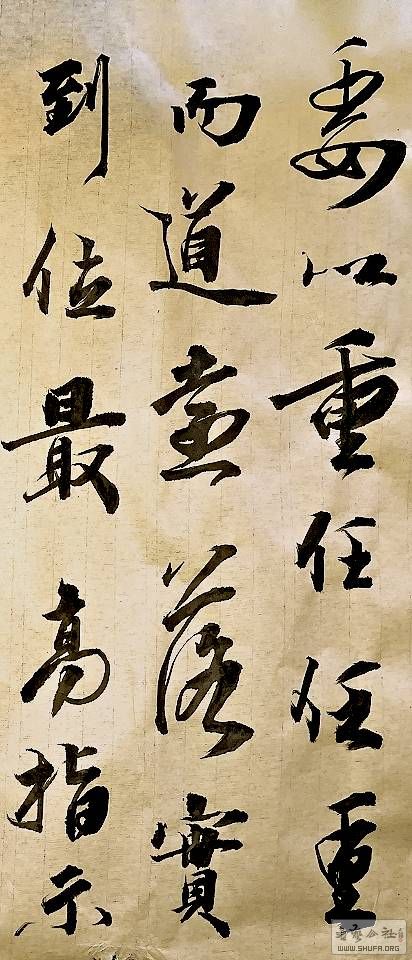 委以重任任重
而道意落實
到位最高指示
书艺公社
WWW.SHUFA.ORG